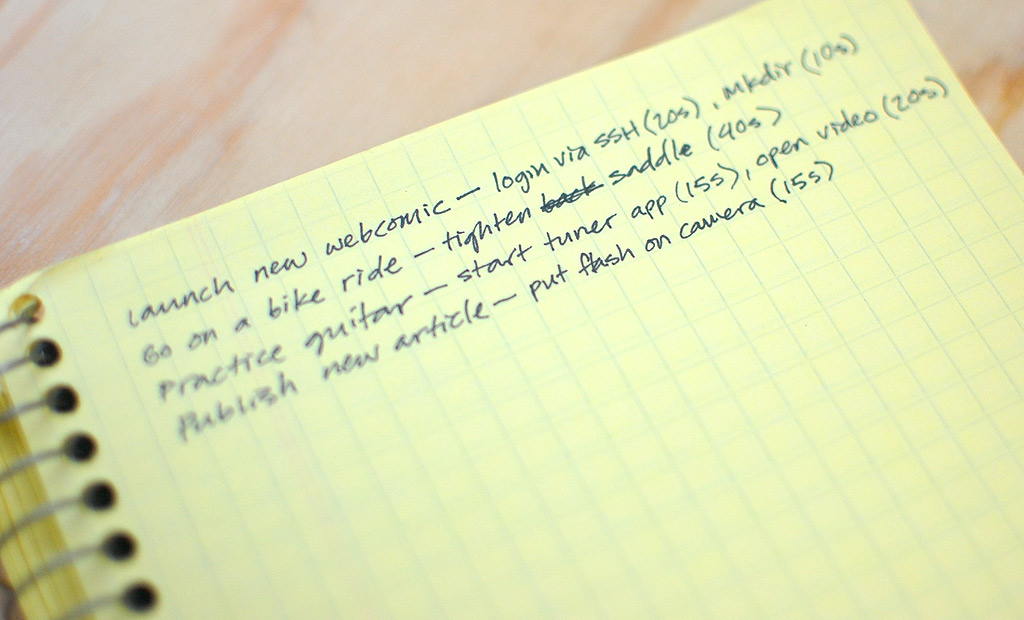 Launch new webcomic – login via SSH (20s), mkdir (10s)
Go on a bike ride – tighten back saddle (40s)
Practice guitar – start tuner app (15s), open video (20s)
Publish new article – put flash on camera (15s)